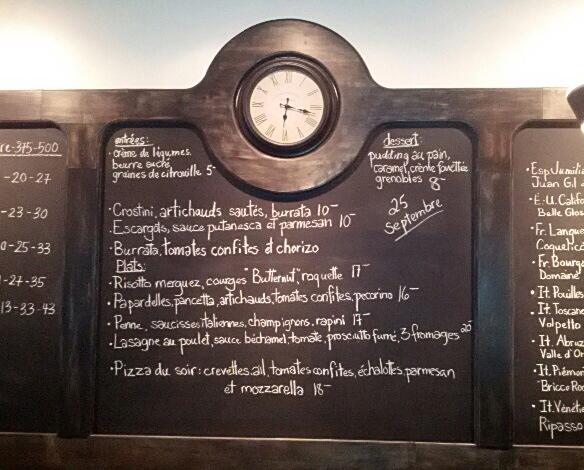 re-375-500
-20-27
-23-30
0-25-33
-27-35
13-33-43
entrées:
·Crème de légumes,
beurre sucré,
graines de citrouille 5-
·Crostini, artichauds sautés, burrata 10-
·Escargots, sauce putanesca et parmesan 10-
·Burrata, tomates confites et chorizo
Plats:
·Risotto merguez, courges "Butternut", roquette 17-
·Papardelles, pancetta, artichauds, tomates confites, pecorino 16-
·Penne, saucisses italiennes, champignons, rapini 17-
·Lasagne au poulet, sauce béchamel, tomate, prosciutto fumé, 3 fromages 20-
·Pizza du soir: crevettes, ail, tomates confites, échalottes, parmesan
et mozzarella 18-
dessert:
pudding au pain,
caramel, crème fouettée
grenobles 8-
25
septembre
·Esp. Jumilla
Juan Gil
·É.U. Califo
Belle Glos
·Fr. Langue
Coquelic
·Fr. Bourgo
Domaine
·It. Pouilles
·It. Toscane
Valpetto
·It. Abruz
Valle d'Or
·It. Piémon
Bricco Ro
·It. Vénétie
Ripasso